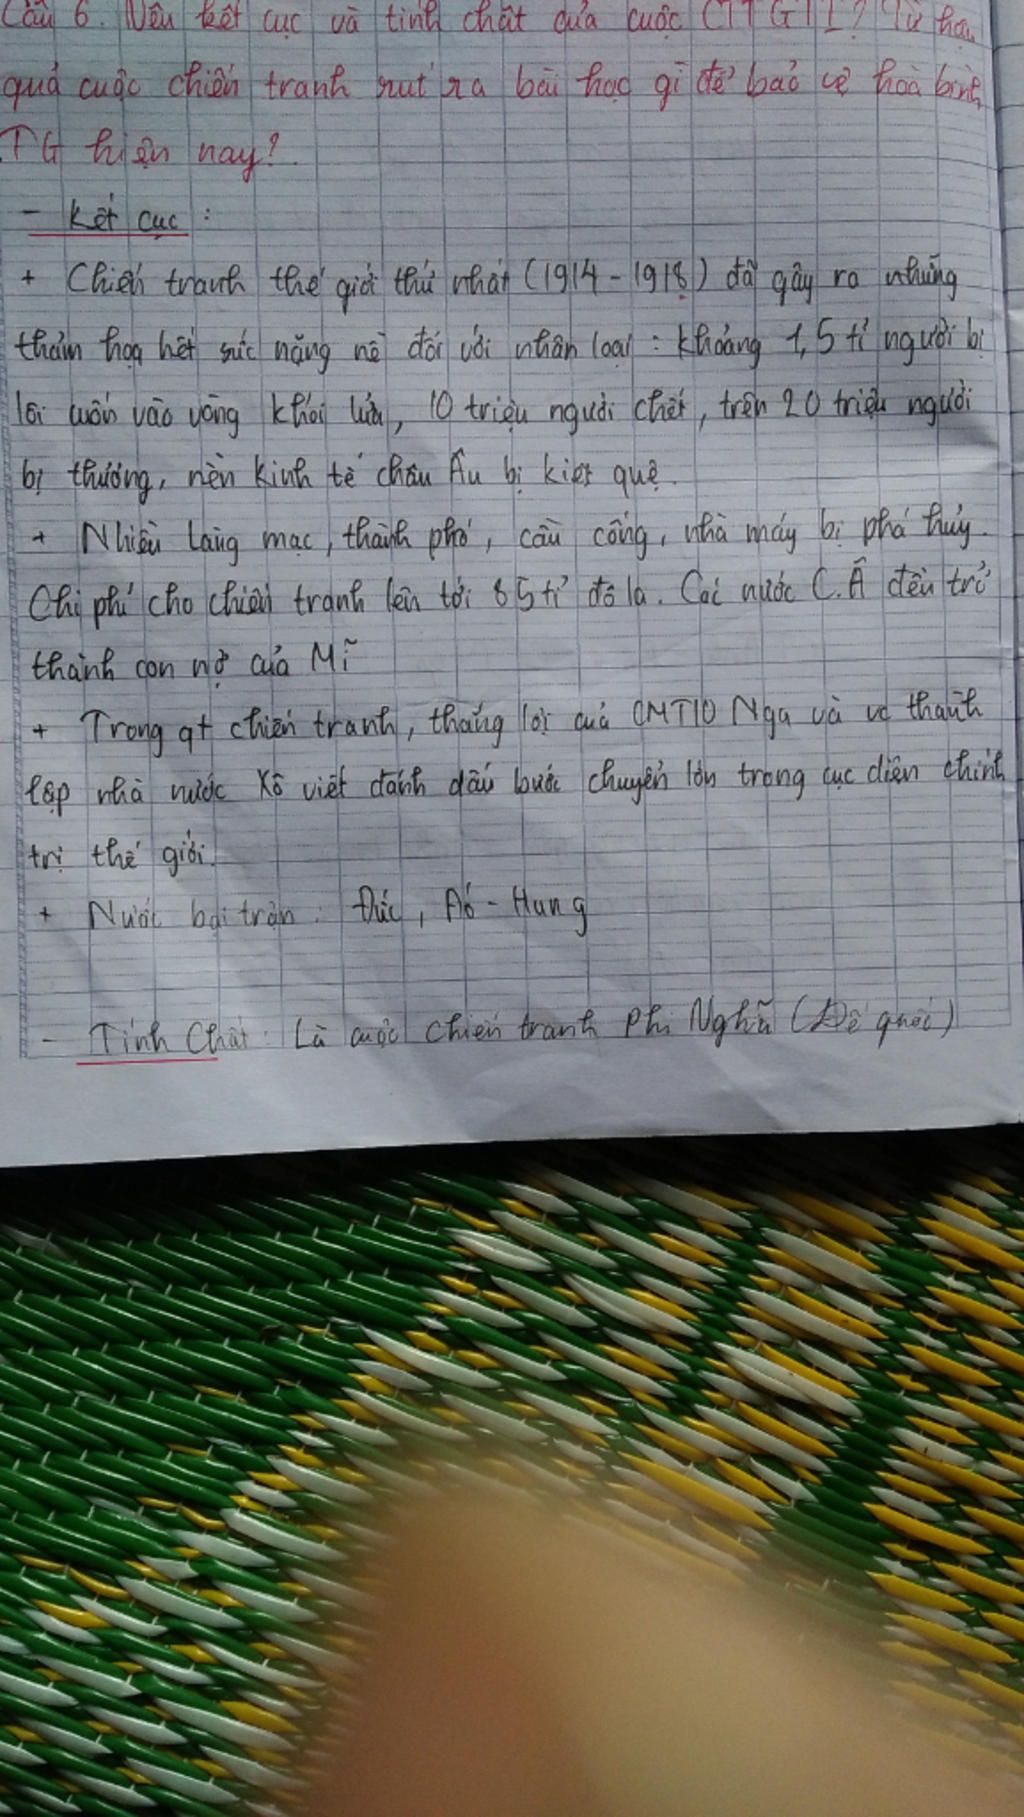 Câu 6. Nêu kết cục và tính chất của cuộc CTTGTI? Từ hậu
quả cuộc chiến tranh rút ra bài học gì để bảo vệ hoà bình
TG hiện nay?
- Kết cục:
+ Chiến tranh thế giới thứ nhất (1914-1918) đã gây ra những
thảm hoạ hết sức nặng nề đối với nhân loại: khoảng 1,5 tỉ người bị
lôi cuốn vào vòng khói lửa, 10 triệu người chết, trên 20 triệu người
bị thương, nền kinh tế châu Âu bị kiệt quệ.
+ Nhiều làng mạc, thành phố, cầu cống, nhà máy bị phá hủy.
Chi phí cho chiến tranh lên tới 85 tỉ đô la. Các nước C.Â đều trở
thành con nợ của Mĩ
+ Trong qt chiến tranh, thắng lợi của CMT10 Nga và vc thành
lập nhà nước Xô viết đánh dấu bước chuyển lớn trong cục diện chính
trị thế giới.
+ Nước bại trận: Đức, Áo - Hung
- Tính Chất: Là cuộc chiến tranh phi Nghĩa (Đế quốc)